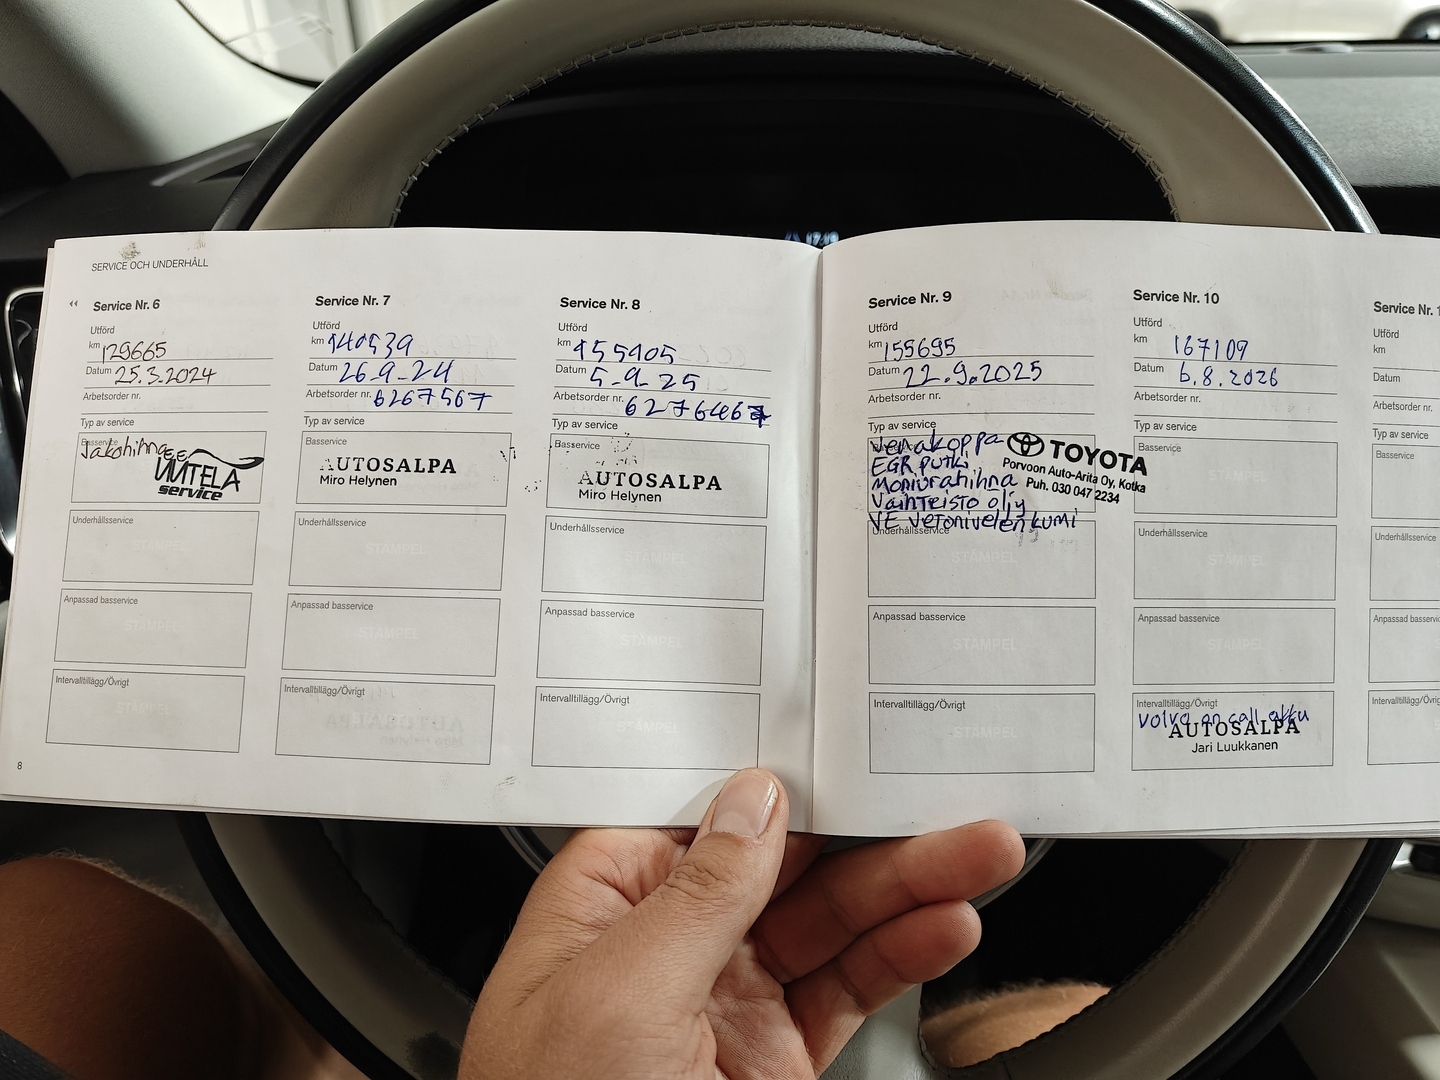 17:19
SERVICE OCH UNDERHÅLL
Service Nr. 6
Utförd
km 129665
Datum 25.3.2024
Arbetsorder nr.
Typ av service
Basservice
Jakohihna
service
Underhållsservice
STÄMPEL
Anpassad basservice
STÄMPEL
Intervalltillägg/Övrigt
STÄMPEL
8
Service Nr. 7
Utförd
km 140539
Datum 26-9-24
Arbetsorder nr. 6267567
Typ av service
Basservice
AUTOSALPA
Miro Helynen
Underhållsservice
STÄMPEL
Anpassad basservice
STÄMPEL
Intervalltillägg/Övrigt
Service Nr. 8
Utförd
km 155405
Datum 5-9-25
Arbetsorder nr. 6276467
Typ av service
Basservice
AUTOSALPA
Miro Helynen
Underhållsservice
STÄMPEL
Anpassad basservice
STÄMPEL
Intervalltillägg/Övrigt
STÄMPEL
Service Nr. 9
Utförd
km 155695
Datum 22.9.2025
Arbetsorder nr.
Typ av service
Venakoppa
EGR putki
Moniurahihna
Vaihteisto öljy
VE vetonivelen kumi
TOYOTA
Porvoon Auto-Arita Oy, Kotka
Puh. 030 047 2234
Underhållsservice
STÄMPEL
Anpassad basservice
STÄMPEL
Intervalltillägg/Övrigt
STÄMPEL
Service Nr. 10
Utförd
km 167109
Datum 6.8.2026
Arbetsorder nr.
Typ av service
Basservice
STÄMPEL
Underhållsservice
STÄMPEL
Anpassad basservice
STÄMPEL
Intervalltillägg/Övrigt
volvo on call akku
AUTOSALPA
Jari Luukkanen
Service Nr. 1
Utförd
km
Datum
Arbetsorder nr.
Typ av service
Basservice
Underhållsservice
Anpassad basservice
Intervalltillägg/Övrigt